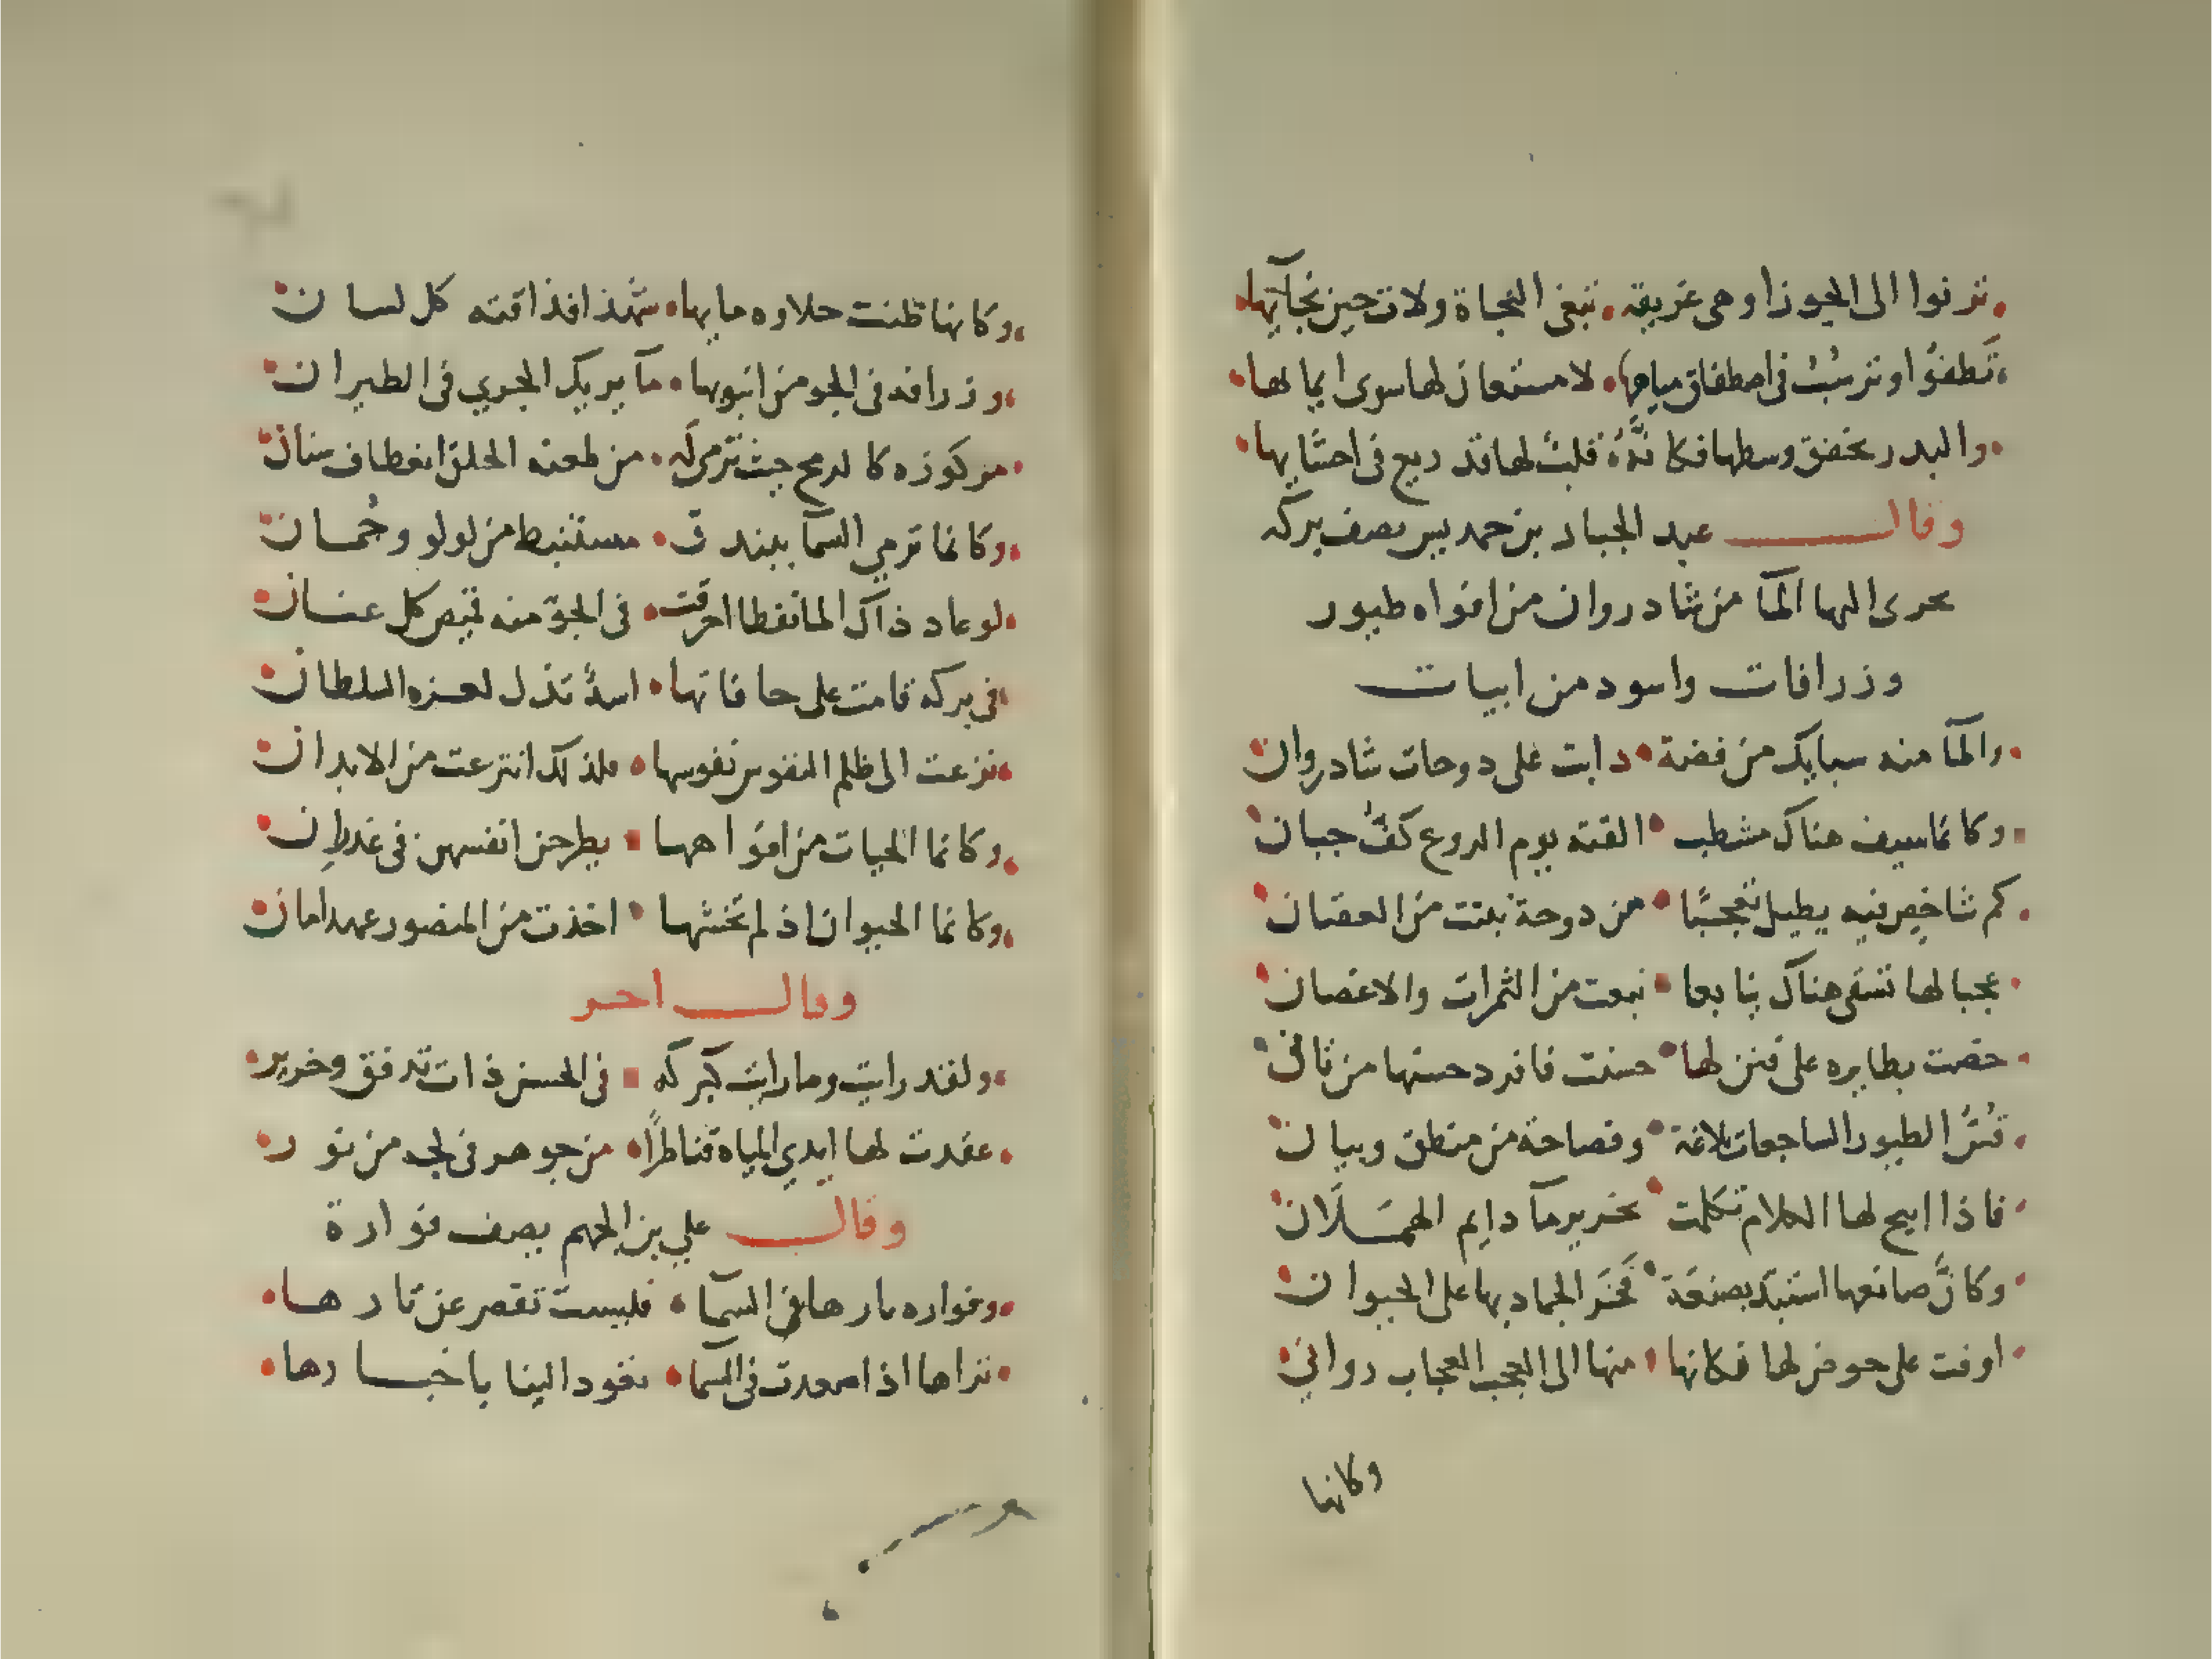 ترنوا الى الجوزا وهى غريقة تبغى النجاة ولات حين نجاتها
تطفوا وترسُبُ فى اصطفاق مياهها لا مستعان لها سوى ايمائها
والبدر يخفق وسطها فكانَّهُ قلبٌ لها قد ريع فى احشائها
وقال عبد الجبار بن حمديس يصف بركة
يجرى اليها المآ من شادروان من افواه طيور
وزرافات واسود من ابيات
والمآ منه سبايك من فضة دابت على دوحات شادروان
وكانما سيف هناك مشطب القته يوم الروع كفُّ جبان
كم شاخص فيه يطيل تعجبًا من دوحة نبتت من العقيان
عجبا لها تسقى هناك ينابعا نبعت من الثمرات والاغصان
خصت بطايره على فنن لها حسنت فافرد حسنها من ثانى
قُسُّ الطيور الساجعات بلاغة وفصاحة من منطق وبيان
فاذا ابيح لها الكلام تكلمت بخرير مآ دايم الهمَلَان
وكانَّ صانعها استبدّ بصنعَة فَخَرَ الجماد بها على الحيوان
اوفت على حوض لها فكانها منها الى العجب العجاب روانى
وكانها
وكانها ظنت حلاوه مايها شهدا فذاقته كل لسان
وزرافه فى الجو من انبوبها مآ يريك الجري فى الطيران
مركوزه كالرمح حيث ترى له من طعنه الحلق انعطاف سنان
وكانما ترمي السمآ ببندق مستنبط من لولو وجُمان
لو عاد ذاك الما نفطا احرقت فى الجوّ منه قميص كل عنان
فى بركه قامت على حافاتها اسدٌ تذل لعزه السلطان
نزعت الى ظلم النفوس نفوسها فلذلك انتزعت من الابدان
وكانما الحيات من افواهها يطرحن انفسهن فى غدران
وكانما الحيوان اذ لم تخشها اخذت من المنصور عهد امان
وقال اخر
ولقد رايت وما رايت كبركه فى الحسن ذات تدفق وخرير
عقدت لها ايدي المياه قناطرًا من جوهر فى لجه من نور
وقال علي بن الجهم يصف فوارة
وفواره ثارها فى السمآ فليست تقصر عن ثارها
تراها اذا صعدت فى السما تعود الينا باخبارها